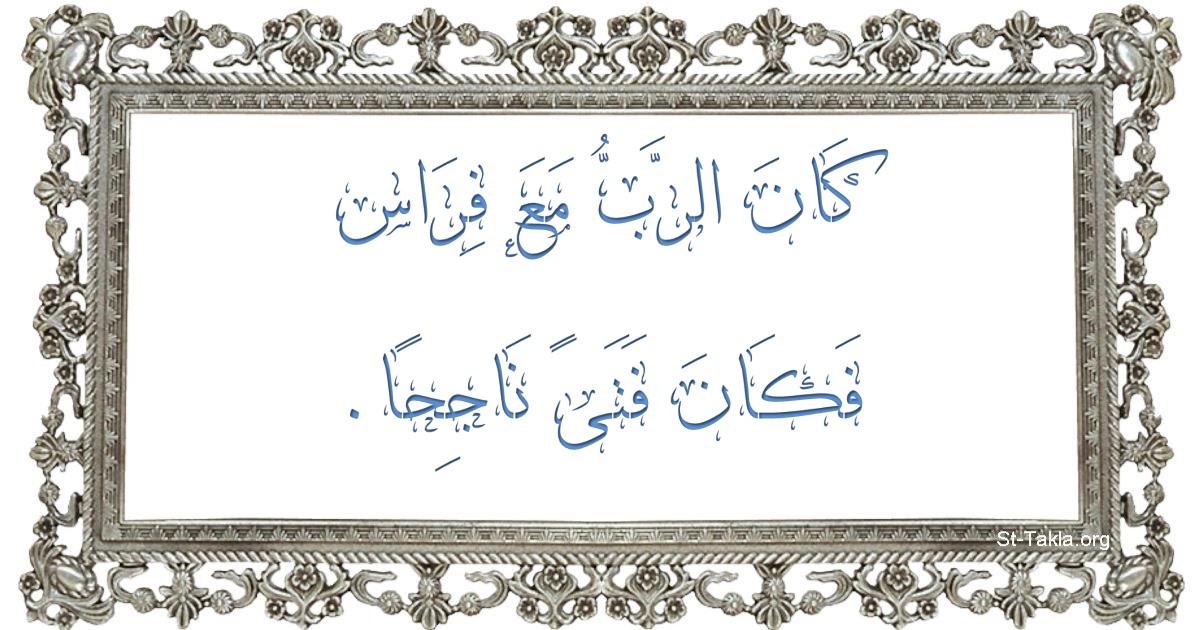 كَانَ الرَّبُّ مَعَ فِرَاس
فَكَانَ فَتَىً نَاجِحًا .
St-Takla.org